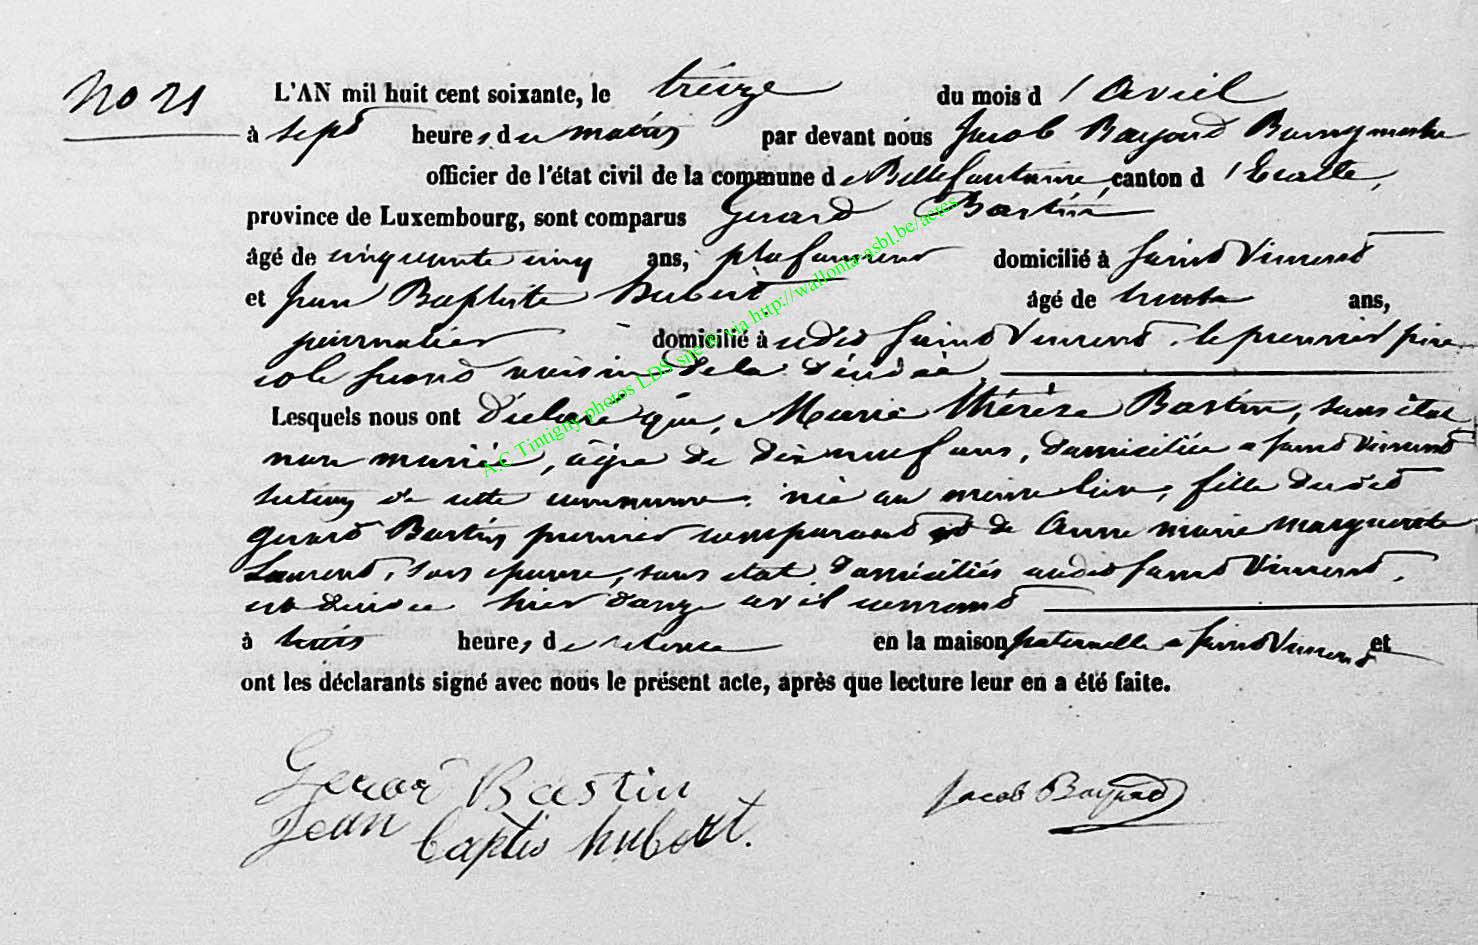 No 21
L'AN mil huit cent soixante, le treize du mois d'avril
à sept heures du matin par devant nous Jacob Bayard Bourgmestre
officier de l'état civil de la commune de Bellefontaine, canton d'Etalle,
province de Luxembourg, sont comparus Gerard Bastin
âgé de cinquante cinq ans, plafonneur domicilié à Saint Vincent
et Jean Baptiste Hubert âgé de trente ans,
journalier domicilié à udit Saint Vincent, le premier père
et le second voisin de la décédée
Lesquels nous ont déclaré que, Marie Thérèse Bastin, sans état
non mariée, âgée de dix neuf ans, domiciliée a Saint Vincent
section de cette commune, née au même lieu, fille dudit
gerard Bastin premier comparant et de Anne marie Marguerite
Laurent, son épouse, sans état, domiciliés audit Saint Vincent,
est décédée hier douze avril courant
à trois heures de relevée en la maison paternelle a Saint Vincent et
ont les déclarants signé avec nous le présent acte, après que lecture leur en a été faite.
Gerard Bastin
Jacob Bayard
Jean baptis hubert.
A.C Tintigny photos LDS via http://wallonia-asbl.be/actes